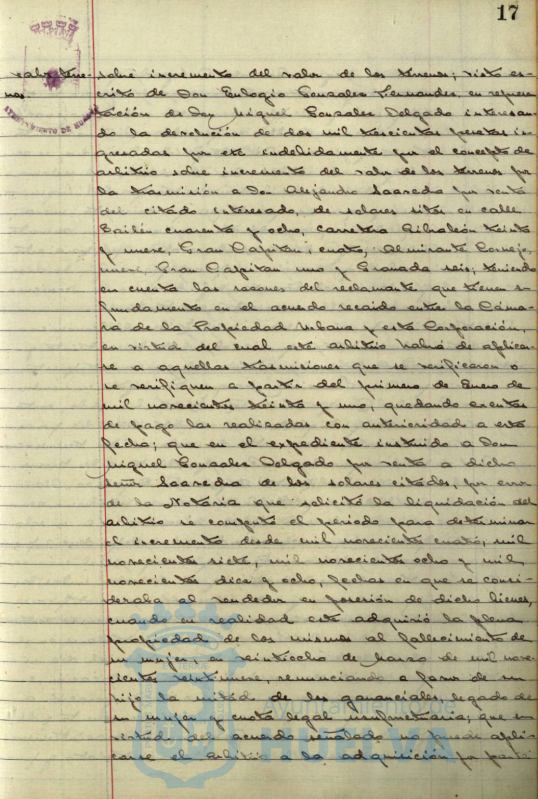 17
sobre incremento del valor de los terrenos; visto es-
crito de Don Eulogio Gonzalez Fernandez, en represen-
tación de Don Miguel Gonzalez Delgado interesan-
do la devolución de dos mil trescientas pesetas in-
gresadas por este indebidamente por el concepto de
arbitrio sobre incremento del valor de los terrenos por
la trasmisión a Don Alejandro Saavedra por venta
del citado interesado, de solares sitos en calle
Bailén cuarenta y ocho, carretera Gibraleón treinta
y nueve, Gran Capitan, cuatro, Almirante Cornejo,
nueve, Gran Capitan uno y Granada seis; teniendo
en cuenta las razones del reclamante que tienen su
fundamento en el acuerdo recaido entre la Cáma-
ra de la Propiedad Urbana y esta Corporación,
en virtud del cual este arbitrio habrá de aplicar-
se a aquellas trasmisiones que se verificaron o
se verifiquen a partir del primero de Enero de
mil novecientos treinta y uno, quedando exentas
de pago las realizadas con anterioridad a esta
fecha; que en el expediente instruido a Don
Miguel Gonzalez Delgado por venta a dicho
señor Saavedra de los solares citados, por error
de la Notaría que solicitó la liquidación del
arbitrio se computó el periodo para determinar
el incremento desde mil novecientos cuatro, mil
novecientos siete, mil novecientos ocho y mil
novecientos diez y ocho, fechas en que se consi-
deraba al vendedor en posesión de dichos bienes,
cuando en realidad este adquirió la plena
propiedad de los mismos al fallecimiento de
su mujer, en veintiocho de Marzo de mil nove-
cientos veintinueve, renunciando a favor de su
hijo la mitad de los gananciales, legado de
su mujer y cuota legal usufructuaria; que en
virtud del acuerdo señalado no puede apli-
carse el arbitrio a la adquisición por parte
AYUNTAMIENTO DE HUELVA
Ayuntamiento de
HUELVA